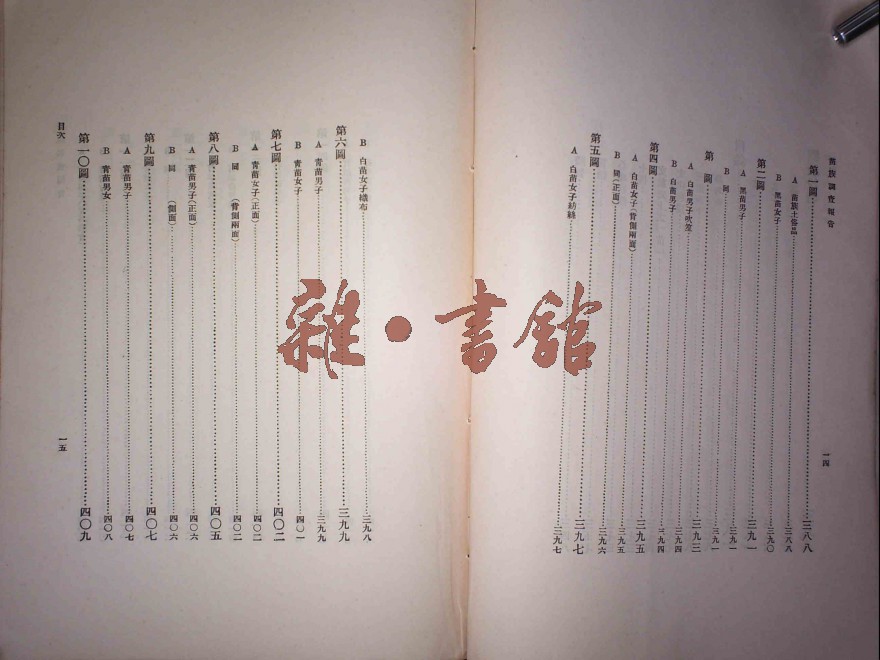 苗族調查報告
第一圖 三八八
A 苗族土俗品 三八八
B 黑苗女子 三九〇
第二圖 三九一
A 黑苗男子 三九一
B 同 三九一
第 圖 三九三
A 白苗男子吹笙 三九四
B 白苗男子 三九四
第四圖 三九五
A 白苗女子(背側兩面) 三九五
B 同(正面) 三九六
第五圖 三九七
A 白苗女子紡絲 三九七
一四
B 白苗女子織布 三九八
第六圖 三九九
A 青苗男子 三九九
B 青苗女子 四〇一
第七圖 四〇二
A 青苗女子(正面) 四〇二
B 同 (背側兩面) 四〇二
第八圖 四〇五
A 青苗男子(正面) 四〇六
B 同 (側面) 四〇六
第九圖 四〇七
A 青苗男子 四〇七
B 青苗男女 四〇八
第一〇圖 四〇九
目次
一五
雜·書館